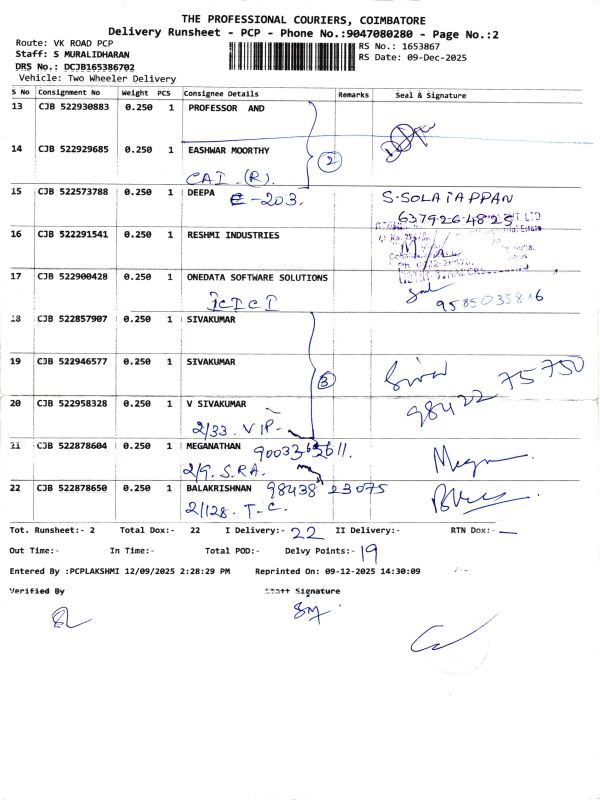 THE PROFESSIONAL COURIERS, COIMBATORE
Delivery Runsheet - PCP - Phone No.:9047080280 - Page No.:2
Route: VK ROAD PCP
Staff: S MURALIDHARAN
DRS No.: DCJB165386702
Vehicle: Two Wheeler Delivery
RS No.: 1653867
RS Date: 09-Dec-2025
S No Consignment No Weight PCS Consignee Details Remarks Seal & Signature
13 CJB 522930883 0.250 1 PROFESSOR AND
14 CJB 522929685 0.250 1 EASHWAR MOORTHY
2
CAI (R).
15 CJB 522573788 0.250 1 DEEPA E-203. S.SOLAIAPPAN
6379264825
16 CJB 522291541 0.250 1 RESHMI INDUSTRIES
17 CJB 522900428 0.250 1 ONEDATA SOFTWARE SOLUTIONS
ICICI
18 CJB 522857907 0.250 1 SIVAKUMAR
19 CJB 522946577 0.250 1 SIVAKUMAR
3
98422 75750
20 CJB 522958328 0.250 1 V SIVAKUMAR
2/33. VIP-
21 CJB 522878604 0.250 1 MEGANATHAN
2/9. S.R.A.
22 CJB 522878650 0.250 1 BALAKRISHNAN 98438 23075
2/128. T-C.
Tot. Runsheet:- 2 Total Dox:- 22 I Delivery:- 22 II Delivery:- RTN Dox:- —
Out Time:- In Time:- Total POD:- Delvy Points:- 19
Entered By :PCPLAKSHMI 12/09/2025 2:28:29 PM Reprinted On: 09-12-2025 14:30:09
Verified By Staff Signature